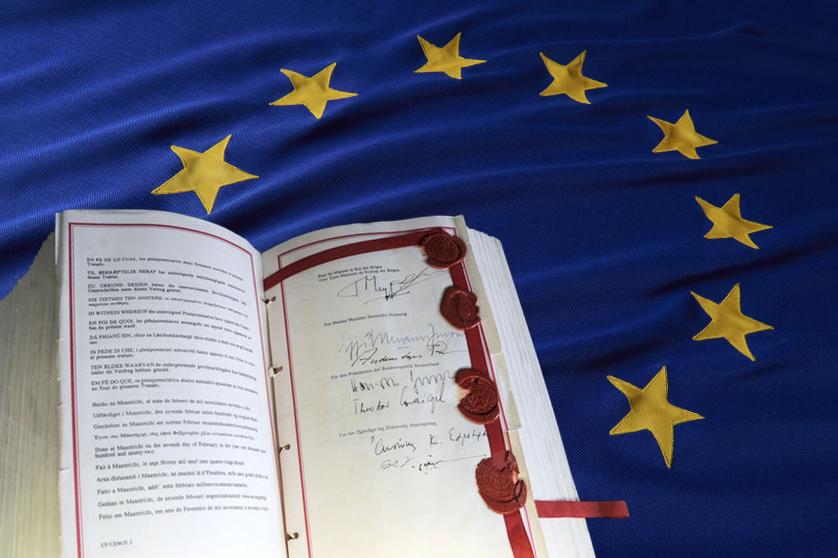 EN FE DE LO CUAL, los plenipotenciarios abajo firmantes suscriben el presente
Tratado.
TIL BEKRÆFTELSE HERAF har undertegnede befuldmægtigede underskrevet
denne Traktat.
ZU URKUND DESSEN haben die unterzeichneten Bevollmächtigten ihre
Unterschriften unter diesen Vertrag gesetzt.
ΣΕ ΠΙΣΤΩΣΗ ΤΩΝ ΑΝΩΤΕΡΩ, οι υπογράφοντες πληρεξούσιοι υπέγραψαν την
παρούσα συνθήκη.
IN WITNESS WHEREOF the undersigned Plenipotentiaries have signed this Treaty.
EN FOI DE QUOI, les plénipotentiaires soussignés ont apposé leurs signatures au
bas du présent traité.
DÁ FHIANÚ SIN, chuir na Lánchumhachtaigh thíos-sínithe a lámh leis
IN FEDE DI CHE, i plenipotenziari sottoscritti hanno apposto le loro firme in calce
al presente trattato.
TEN BLIJKE WAARVAN de ondergetekende gevolmachtigden hun handtekening
onder dit Verdrag hebben gesteld.
EM FÉ DO QUE, os plenipotenciários abaixo assinados apuseram as suas assinaturas
no final do presente Tratado.
Hecho en Maastricht, el siete de febrero de mil novecientos noventa y dos.
Udfærdiget i Maastricht, den syvende februar nitten hundrede og
Geschehen zu Maastricht am siebten Februar
Έγινε στο Μάαστριχτ, στις εφτά Φεβρουαρίου χίλια εννιακόσια
Done at Maastricht on the seventh day of February in the year one thousand nine
hundred and ninety-two.
Fait à Maastricht, le sept février mil neuf cent quatre-vingt-douze.
Arna dhéanamh i Maastricht, an seachtú lá d'Fheabhra,
Fatto a Maastricht, addì sette febbraio millenovecentonovantadue.
Gedaan te Maastricht, de zevende februari negentienhonderd
Feito em Maastricht, em sete de Fevereiro de mil novecentos e noventa e dois.
UF-UEM/X 2
Pour Sa Majesté le Roi des Belges
Voor Zijne Majesteit de Koning der Belgen
For Hendes Majestæt Danmarks Dronning
Für den Präsidenten der Bundesrepublik Deutschland
Theodor Waigel
Για τον Πρόεδρο της Ελληνικής Δημοκρατίας